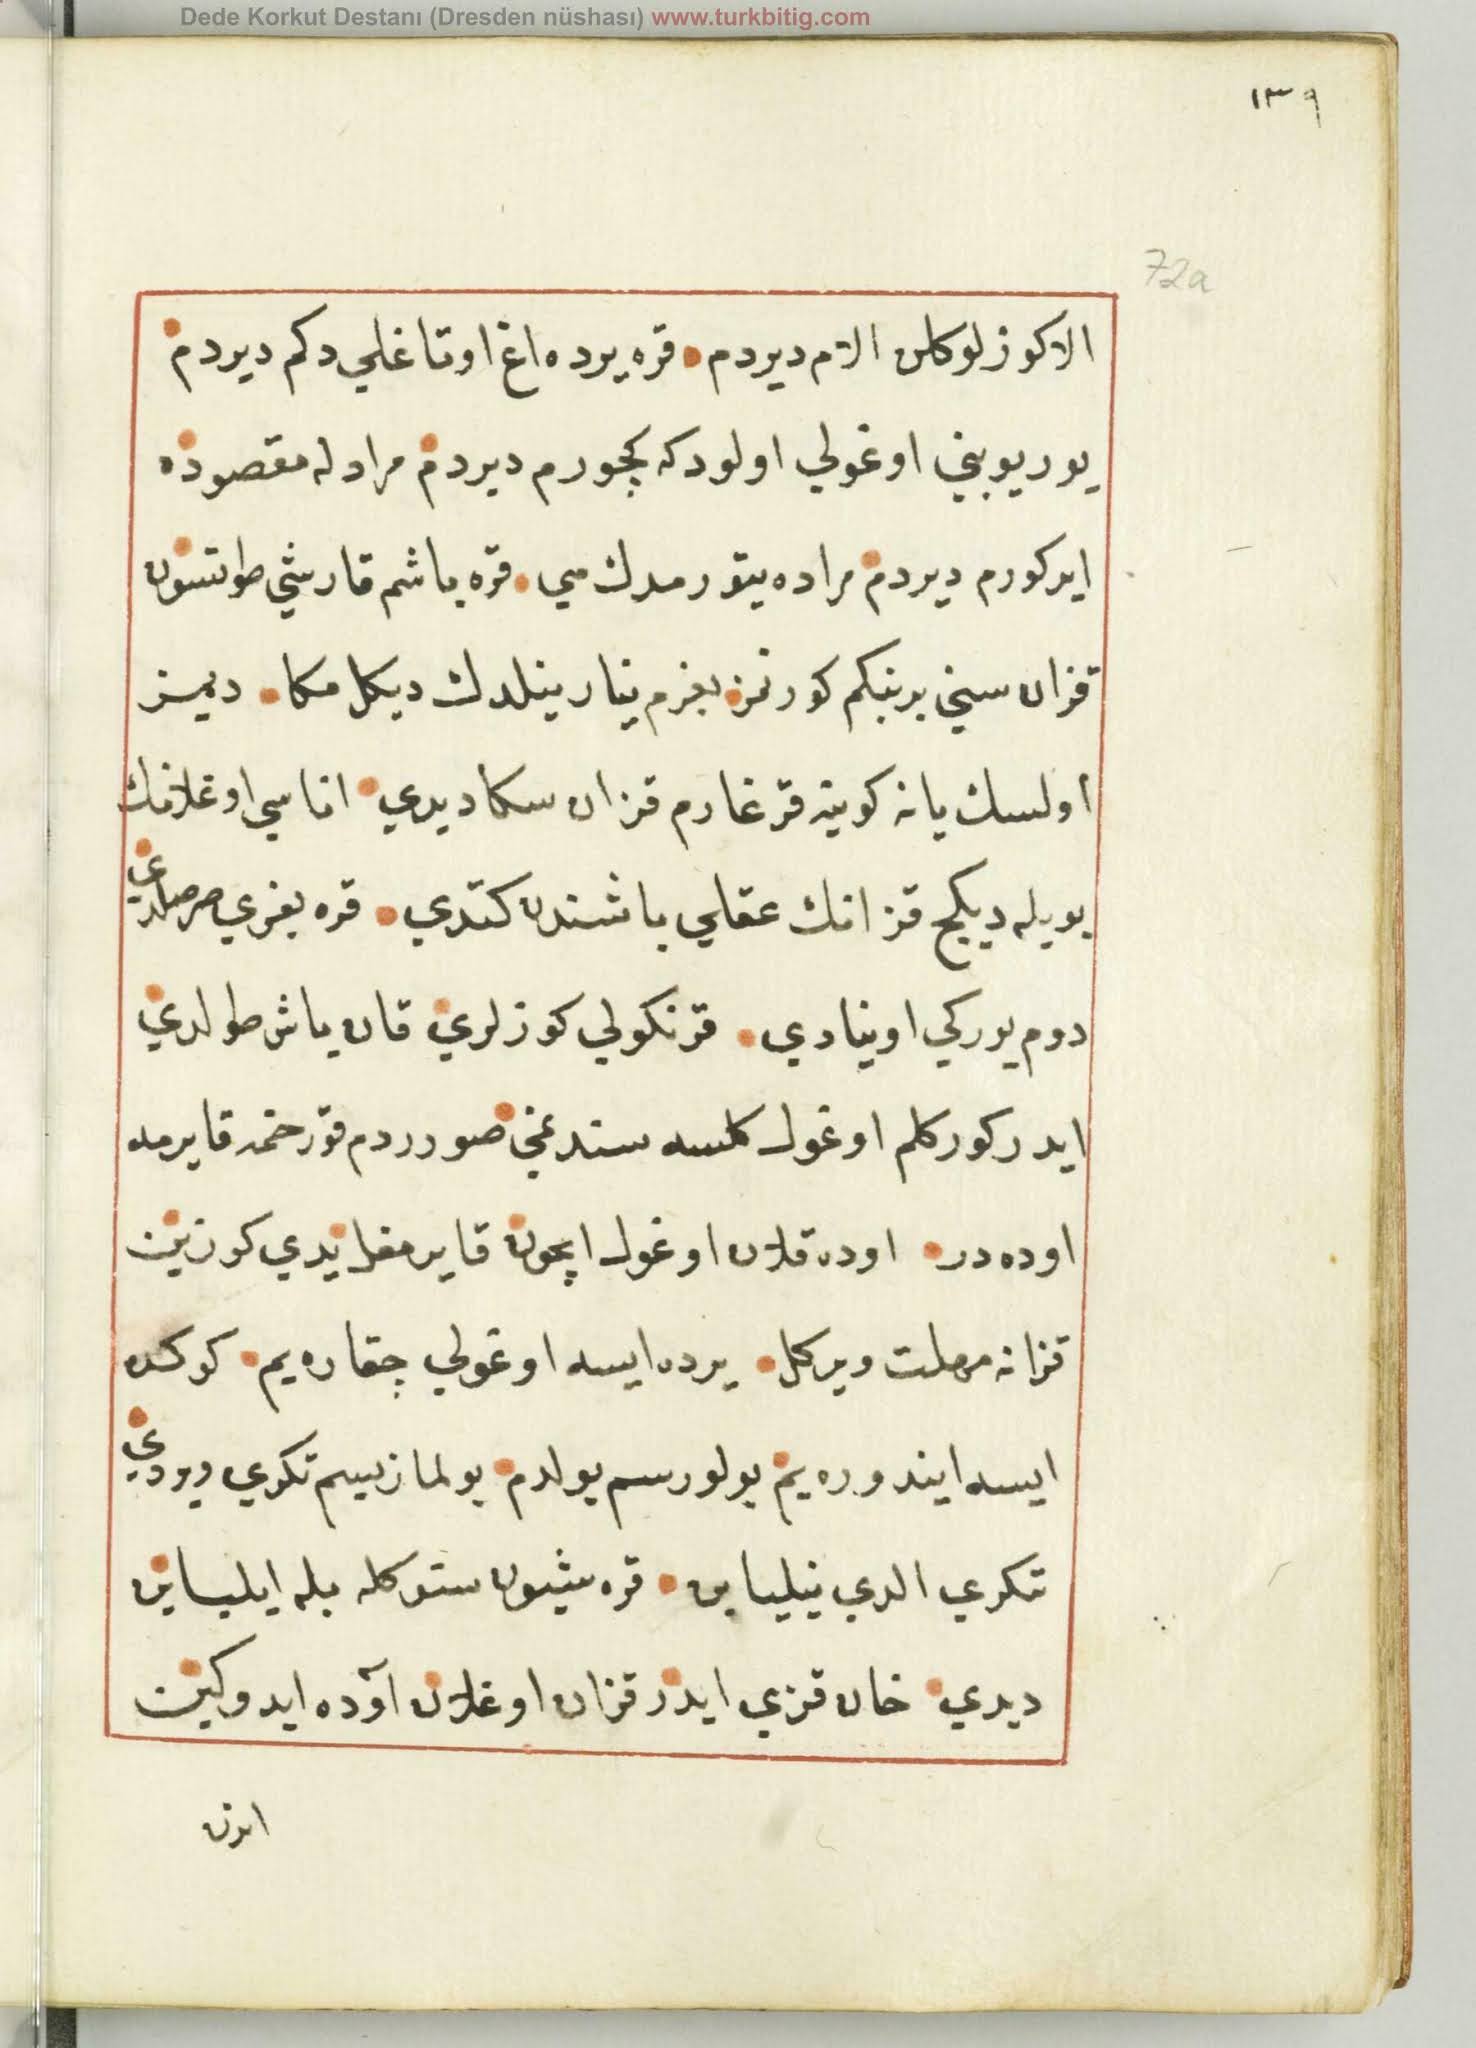 Dede Korkut Destanı (Dresden nüshası) www.turkbitig.com
١٣٩
72a
الا كوزلو كلن الام ديردم قره يرده اغ اوتاغلي دكم ديردم
يوريوبني اوغولي اولو دكه كچورم ديردم مرادله مقصوده
ايركورم ديردم مراده يتورمدك مي قره باشم قارشي طوتسون
قزان سني برينكم كورنمز بغرم ينار ينلدك ديكل مكا ديمز
اولسك يانه كوينه قرغارم قزان سكا ديدي اناسي اوغلانك
بويله ديكج قزانك عقلي باشندن كتدي قره بغري صرصلدي
دوم يوركي اوينادي قرنكولي كوزلري قان ياش طولدي
ايدر كوركلم اوغول كلسه سندغي صورردم قورخمه قايرمه
اوده در اوده قلان اوغول ايچون قايرمغل يدي كوزين
قزانه مهلت ويركل يرده ايسه اوغولي چقاره يم كوكده
ايسه ايندوره يم بولورسم بولدم بولمازسم تكري ويردي
تكري الدي نيليابن قره شيون ستوكله بله ايلياين
ديدي خان قزي ايدر قزان اوغلان آوده ايدوكين
اندن